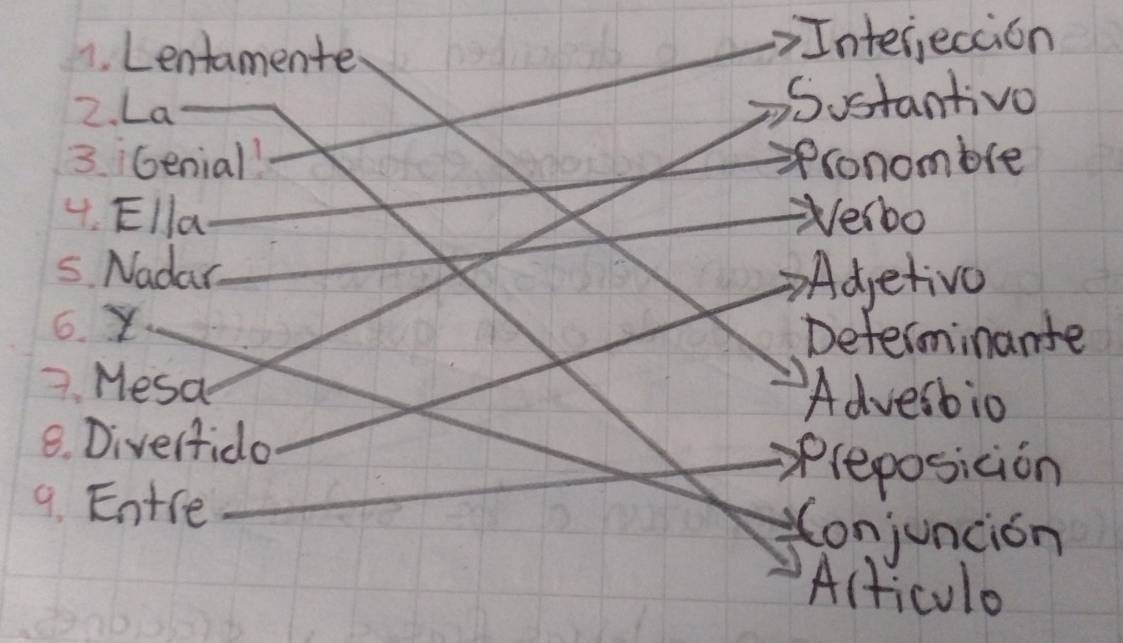 1. Lentamente
2. La
3. ¡Genial!
4. Ella
5. Nadar
6. Y
7. Mesa
8. Divertido
9. Entre
Interjección
Sustantivo
Pronombre
Verbo
Adjetivo
Determinante
Adverbio
Preposición
Conjunción
Articulo